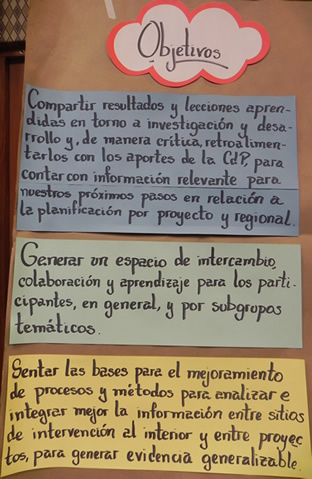 Objetivos
Compartir resultados y lecciones apren-
didas en torno a investigación y desa-
rrollo y, de manera crítica, retroalimen-
tarlos con los aportes de la CdP, para
contar con información relevante para
nuestros próximos pasos en relación a
la planificación por proyecto y regional.
Generar un espacio de intercambio,
colaboración y aprendizaje para los parti-
cipantes, en general, y por subgrupos
temáticos.
Sentar las bases para el mejoramiento
de procesos y métodos para analizar e
integrar mejor la información entre sitios
de intervención al interior y entre proyec
tos, para generar evidencia generalizable.